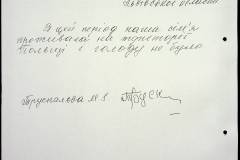 Львівської області
В цей період наша сім'я
проживала на території
Польщі і голоду не було
Трускалова М. І.